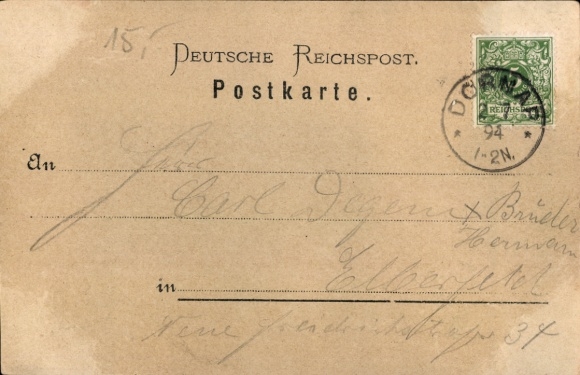 15,
DEUTSCHE REICHSPOST.
Postkarte.
DORNAP
94
1-2N.
REICHSPOST
An
Carl Degen + Brüder
Hermann
in Elberfeld
Neue Friedrichstraße 34